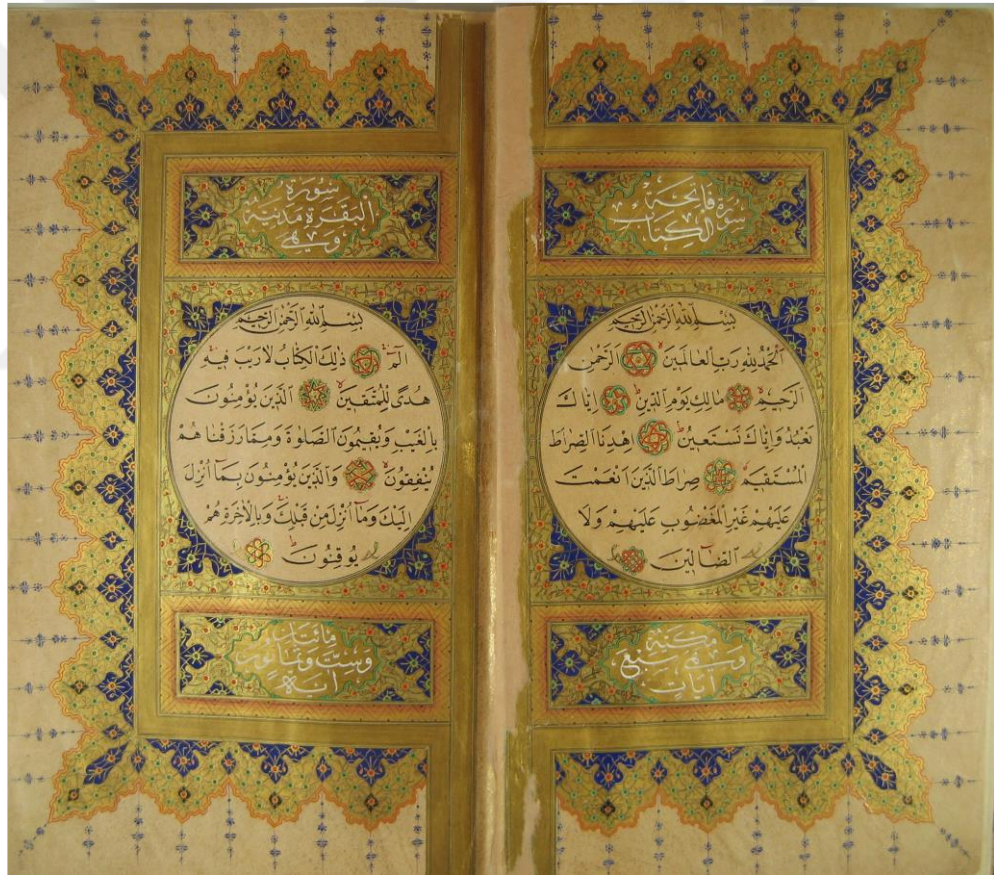 سورة فاتحة
الكتاب
بسم الله الرحمن الرحيم
الحمد لله رب العالمين الرحمن
الرحيم مالك يوم الدين اياك
نعبد واياك نستعين اهدنا الصراط
المستقيم صراط الذين انعمت
عليهم غير المغضوب عليهم ولا
الضالين
مكية
وهي سبع
آيات
سورة
البقرة مدنية
وهي
بسم الله الرحمن الرحيم
الم ذلك الكتاب لا ريب فيه
هدى للمتقين الذين يؤمنون
بالغيب ويقيمون الصلوة ومما رزقناهم
ينفقون والذين يؤمنون بما انزل
اليك وما انزل من قبلك وبالآخرة هم
يوقنون
مائتان
وست وثمانون
آية